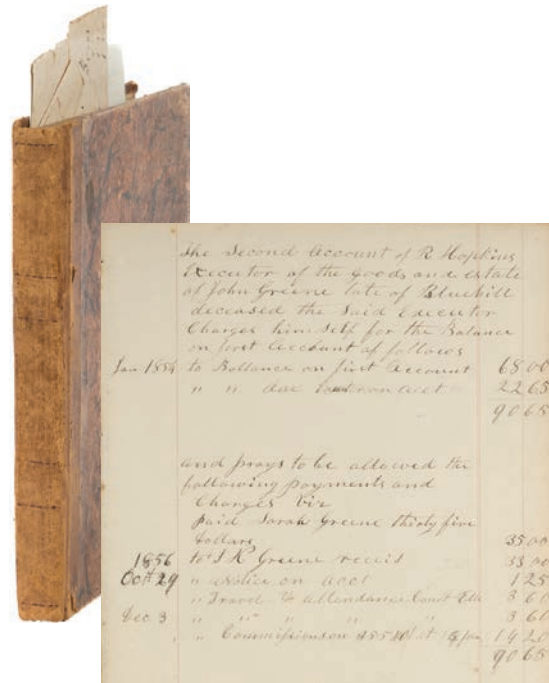 The Second Account of R Hopkins
Executor of the Goods and Estate
of John Greene late of Bluehill
deceased the Said Executor
Charges him Self for the Balance
on first Account as follows
Jan 1854 to Ballance on first Account 68 00
" " due on acct 22 65
90 65
and prays to be allowed the
following payments and
Charges Viz
paid Sarah Greene thirty five
dollars 35 00
1856 to S K Greene receit 33 00
Oct 29 " Notice on acct 1 25
" Travel & attendance Court 3 60
Dec 3 " " " " " 3 60
" Commissions on at 14 20
90 65